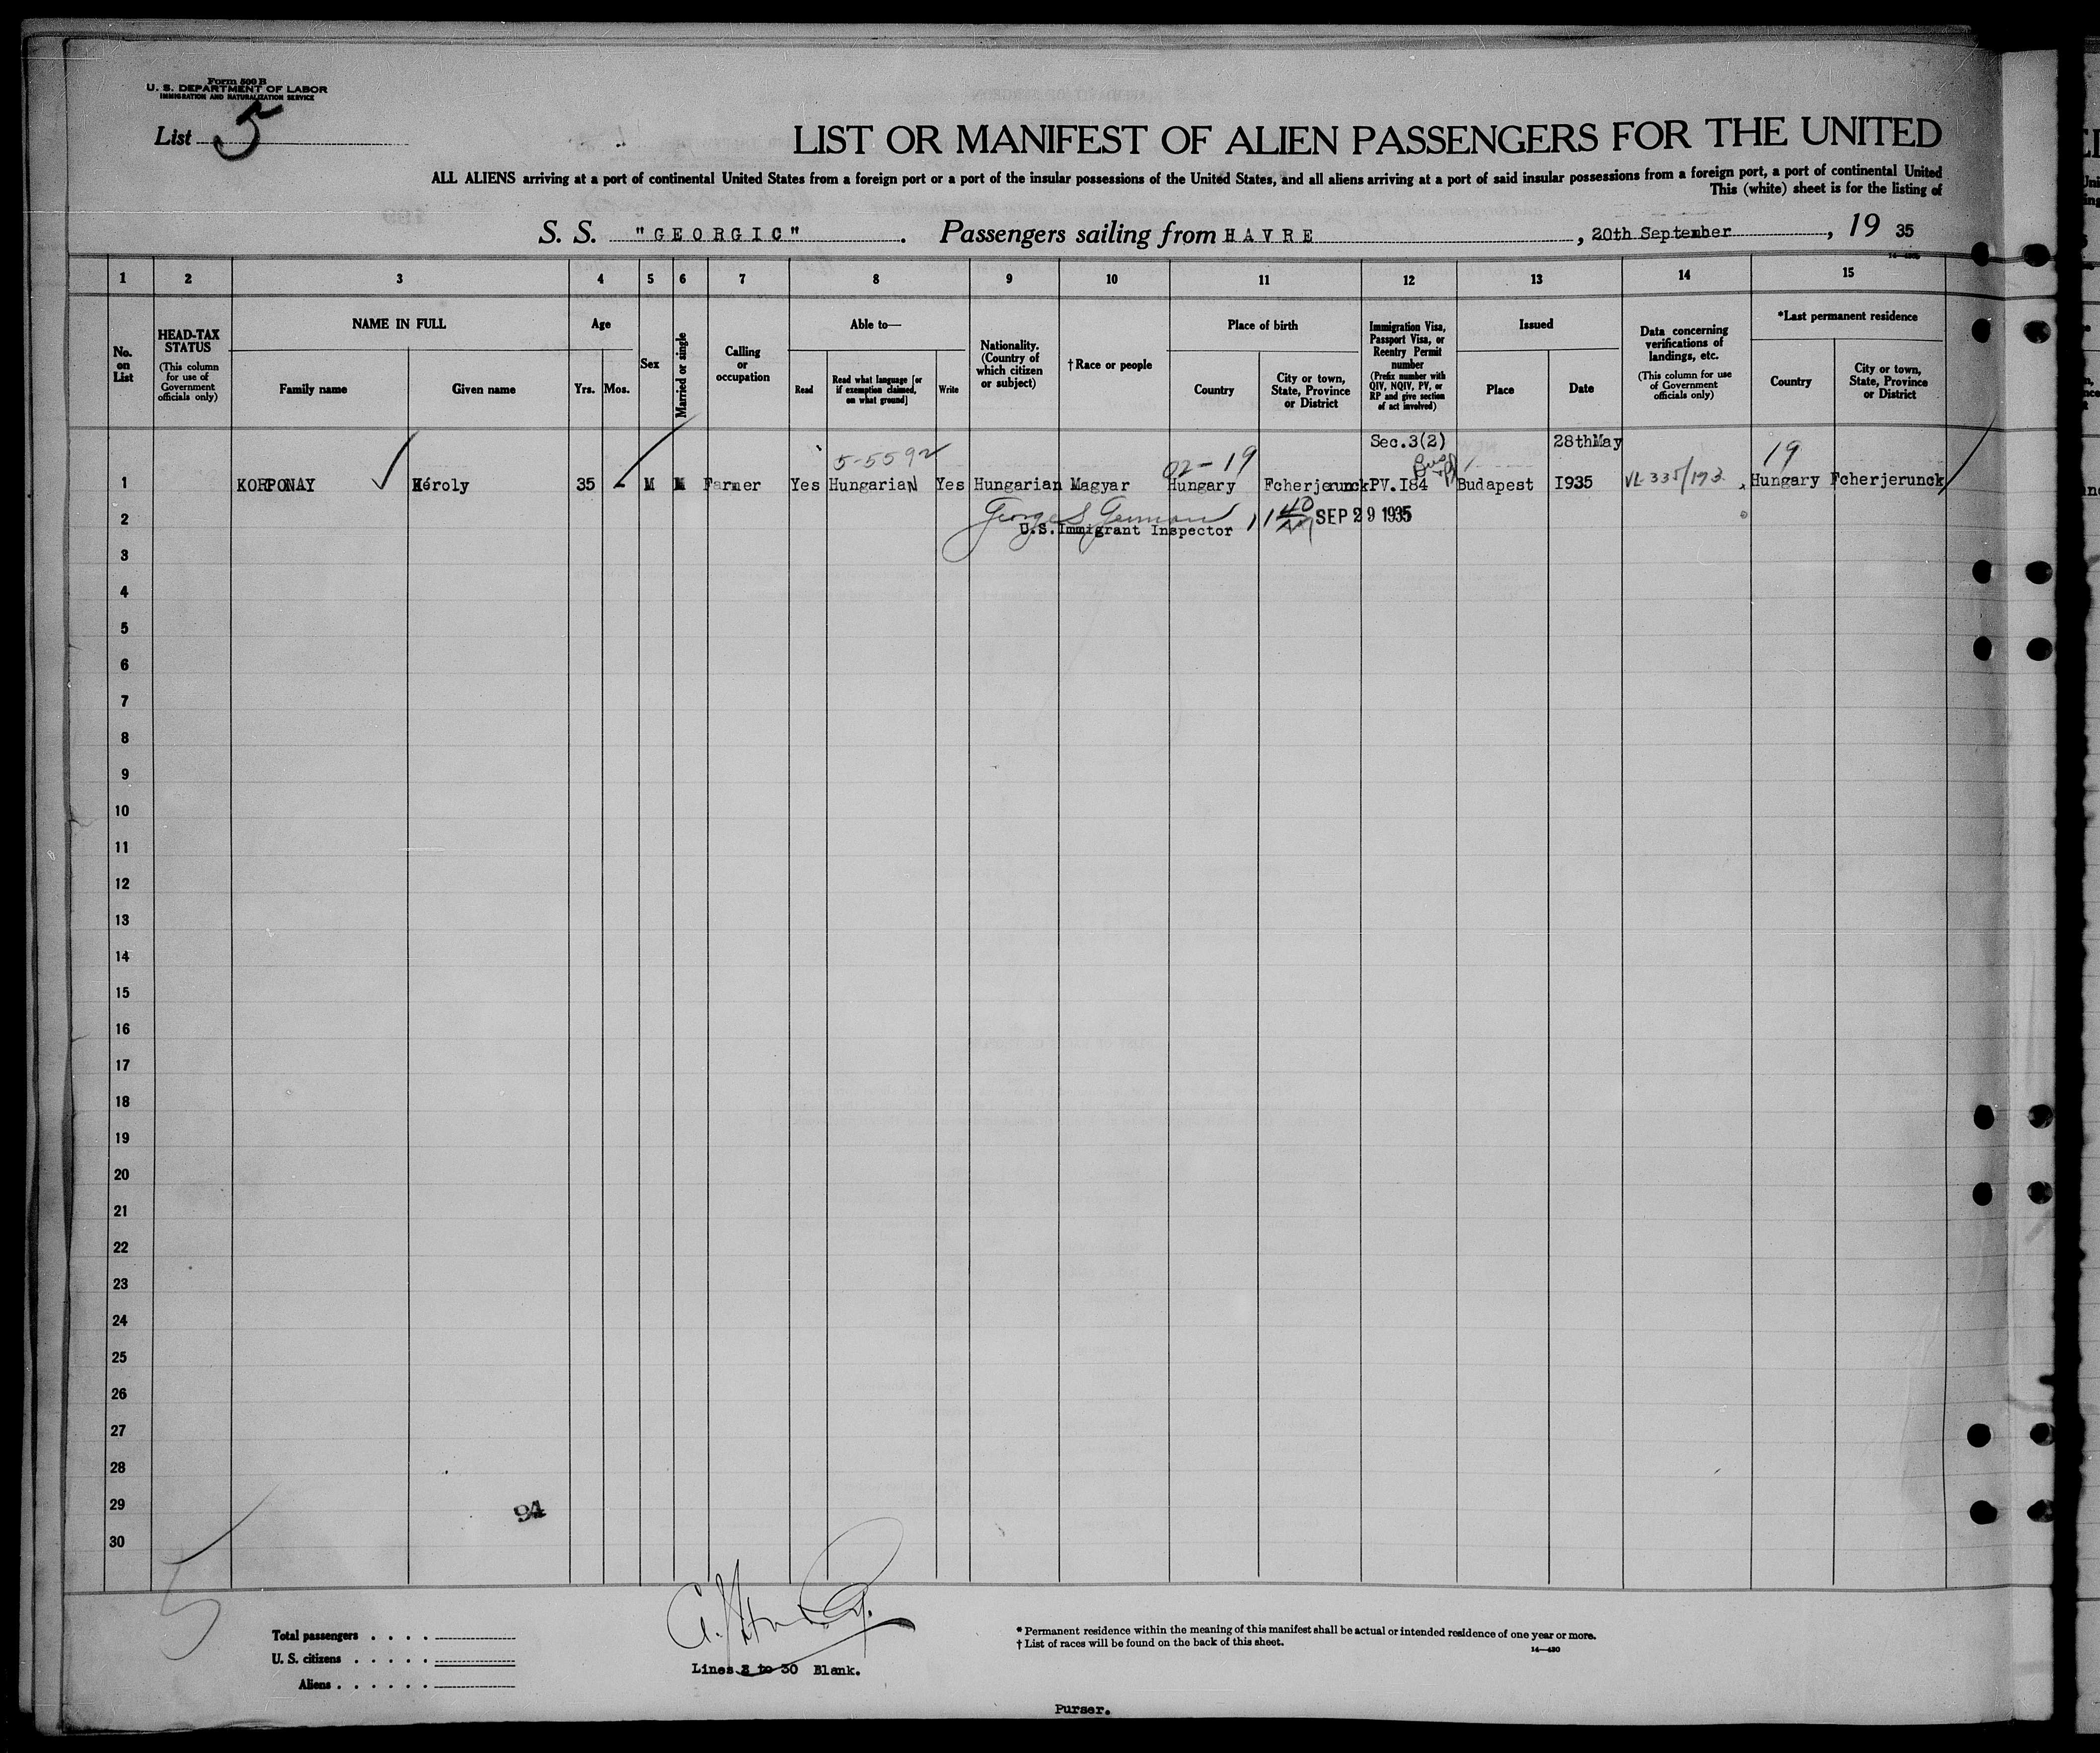 Form 500 B
U. S. DEPARTMENT OF LABOR
IMMIGRATION AND NATURALIZATION SERVICE
List 5
LIST OR MANIFEST OF ALIEN PASSENGERS FOR THE UNITED
ALL ALIENS arriving at a port of continental United States from a foreign port or a port of the insular possessions of the United States, and all aliens arriving at a port of said insular possessions from a foreign port, a port of continental United
This (white) sheet is for the listing of
S. S. "GEORGIC". Passengers sailing from HAVRE, 20th September, 19 35
1 2 3 4 5 6 7 8 9 10 11 12 13 14 15
No. on List
HEAD-TAX STATUS
(This column for use of Government officials only)
NAME IN FULL
Family name
Given name
Age
Yrs. Mos.
Sex
Married or single
Calling or occupation
Able to—
Read
Read what language [or if exemption claimed, on what ground]
Write
Nationality. (Country of which citizen or subject)
†Race or people
Place of birth
Country
City or town, State, Province or District
Immigration Visa, Passport Visa, or Reentry Permit number
(Prefix number with QIV, NQIV, PV, or RP and give section of act involved)
Issued
Place
Date
Data concerning verifications of landings, etc.
(This column for use of Government officials only)
*Last permanent residence
Country
City or town, State, Province or District
Sec.3(2) 28thMay
5-5592 02-19 19
1 KORPONAY Károly 35 - M M Farmer Yes Hungarian Yes Hungarian Magyar Hungary Fcherjerunck PV.I84 Budapest I935 VL 335/193 Hungary Fcherjerunck
2 U.S.Immigrant Inspector 11 40 AM SEP 29 1935
3
4
5
6
7
8
9
10
11
12
13
14
15
16
17
18
19
20
21
22
23
24
25
26
27
28
29
94
30
5
Total passengers
U. S. citizens
Aliens
Lines 2 to 30 Blank.
* Permanent residence within the meaning of this manifest shall be actual or intended residence of one year or more.
† List of races will be found on the back of this sheet.
14—430
Purser.